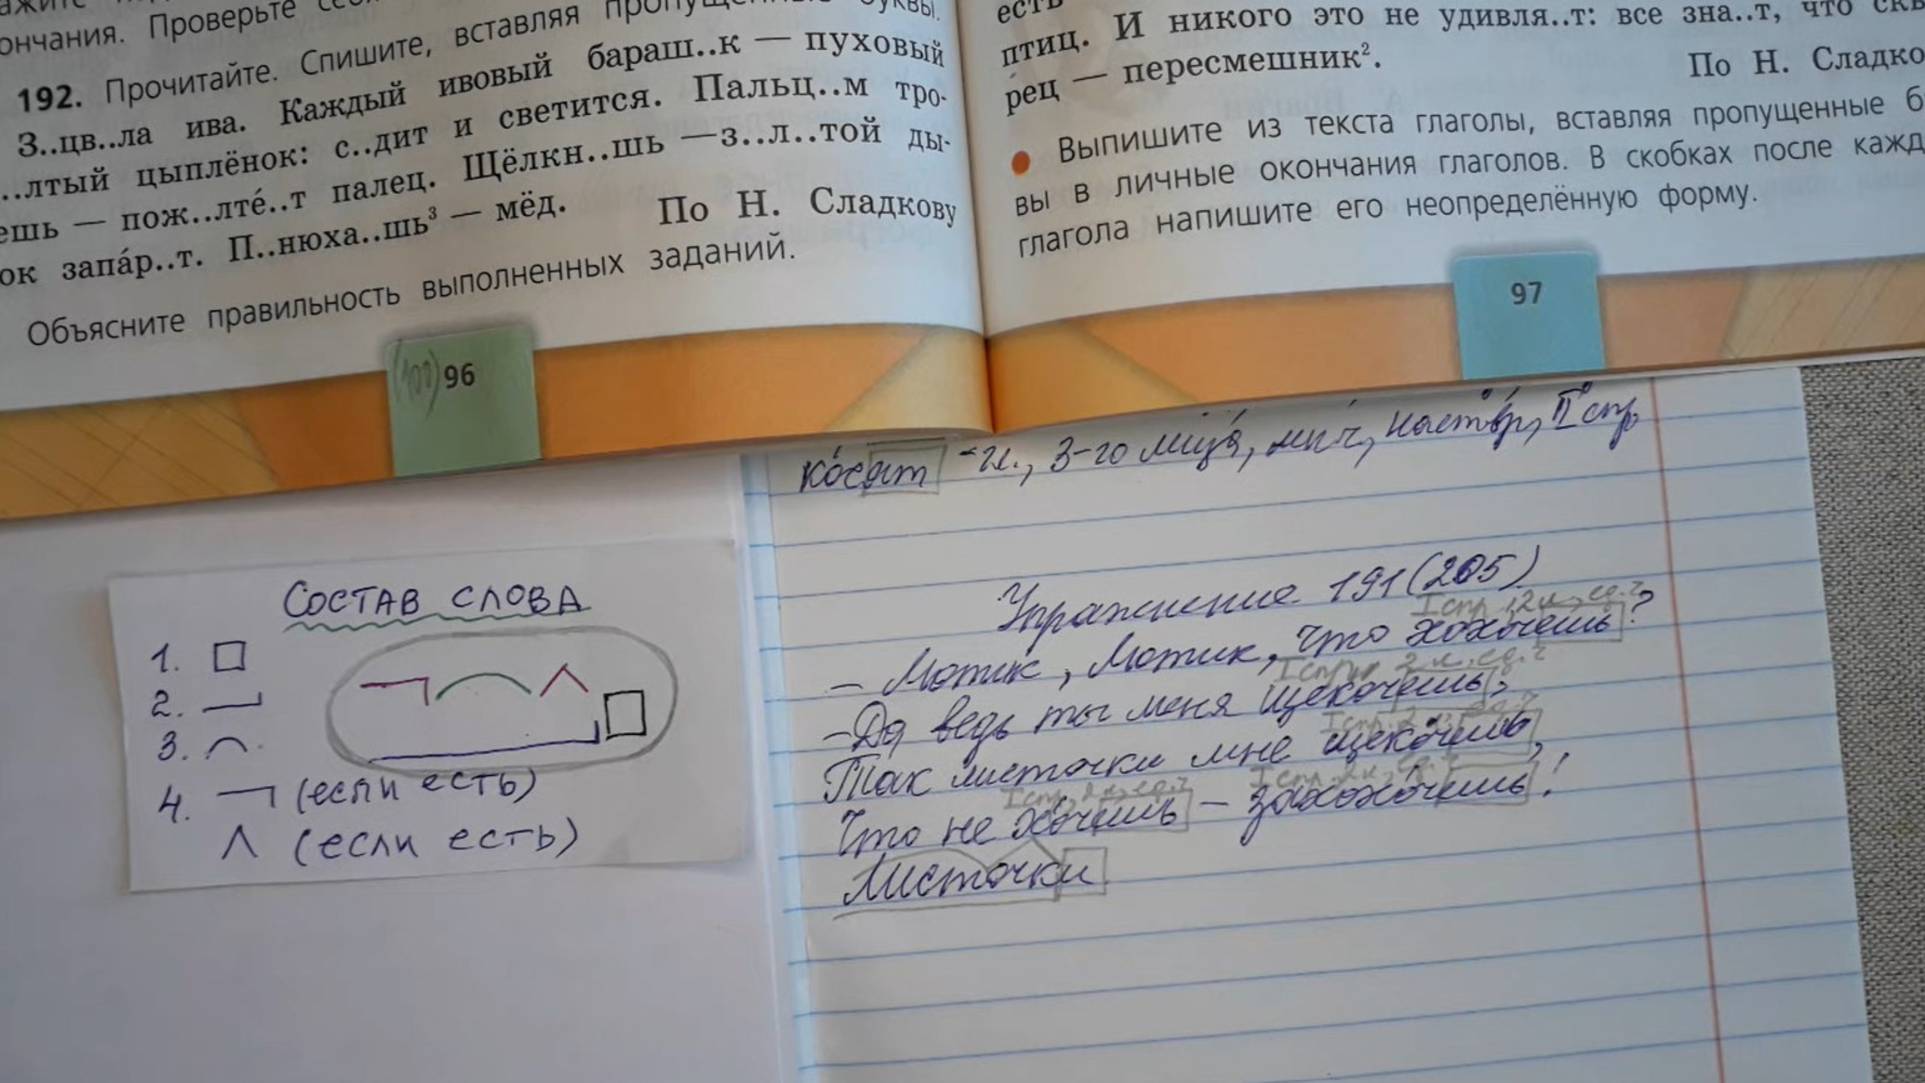 ончания. Проверьте
192. Прочитайте. Спишите, вставляя пропущенные буквы.
З..цв..ла ива. Каждый ивовый бараш..к — пуховый
..лтый цыплёнок: с..дит и светится. Пальц..м тро-
ешь — пож..лте́..т палец. Щёлкн..шь —з..л..той ды-
ок запа́р..т. П..нюха..шь³ — мёд.
По Н. Сладкову
Объясните правильность выполненных заданий.
96
есть
птиц. И никого это не удивля..т: все зна..т, что
ре́ц — пересмешник².
По Н. Сладко
Выпишите из текста глаголы, вставляя пропущенные
вы в личные окончания глаголов. В скобках после кажд
глагола напишите его неопределённую форму.
97
ко́сят -гл., 3-го лица, мн ч, наст вр, II спр
СОСТАВ СЛОВА
1.
2.
3.
4. (если есть)
(если есть)
Упражнение 191 (205)
I спр, 2 л, ед. ч
– Мотик, Мотик, что хохочешь?
– Да ведь ты меня щекочешь,
Так листочки мне щекочешь,
Что не хочешь – захохочешь!
Листочки